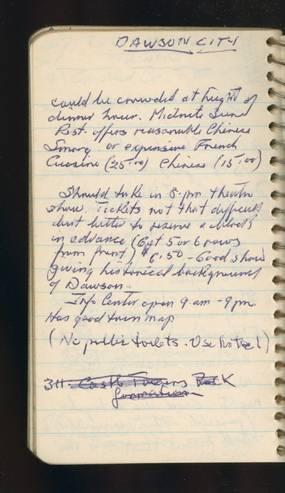 DAWSON CITY
could be crowded at height of
dinner hour. Midnite Sun
Rest. offers reasonable Chinese
Smorg or expensive French
Cuisine (25.00) Chinese (15.00)
Should take in 8-pm theatre
show. Tickets not that difficult
but better to reserve a
in advance (Get 5 or 6 rows
from front) $6.50 - Good show
giving historical background
of Dawson.
Info Center open 9 am - 9 pm
Has good town map
(No public toilets. Use hotel)
311 Castle Towers
formation